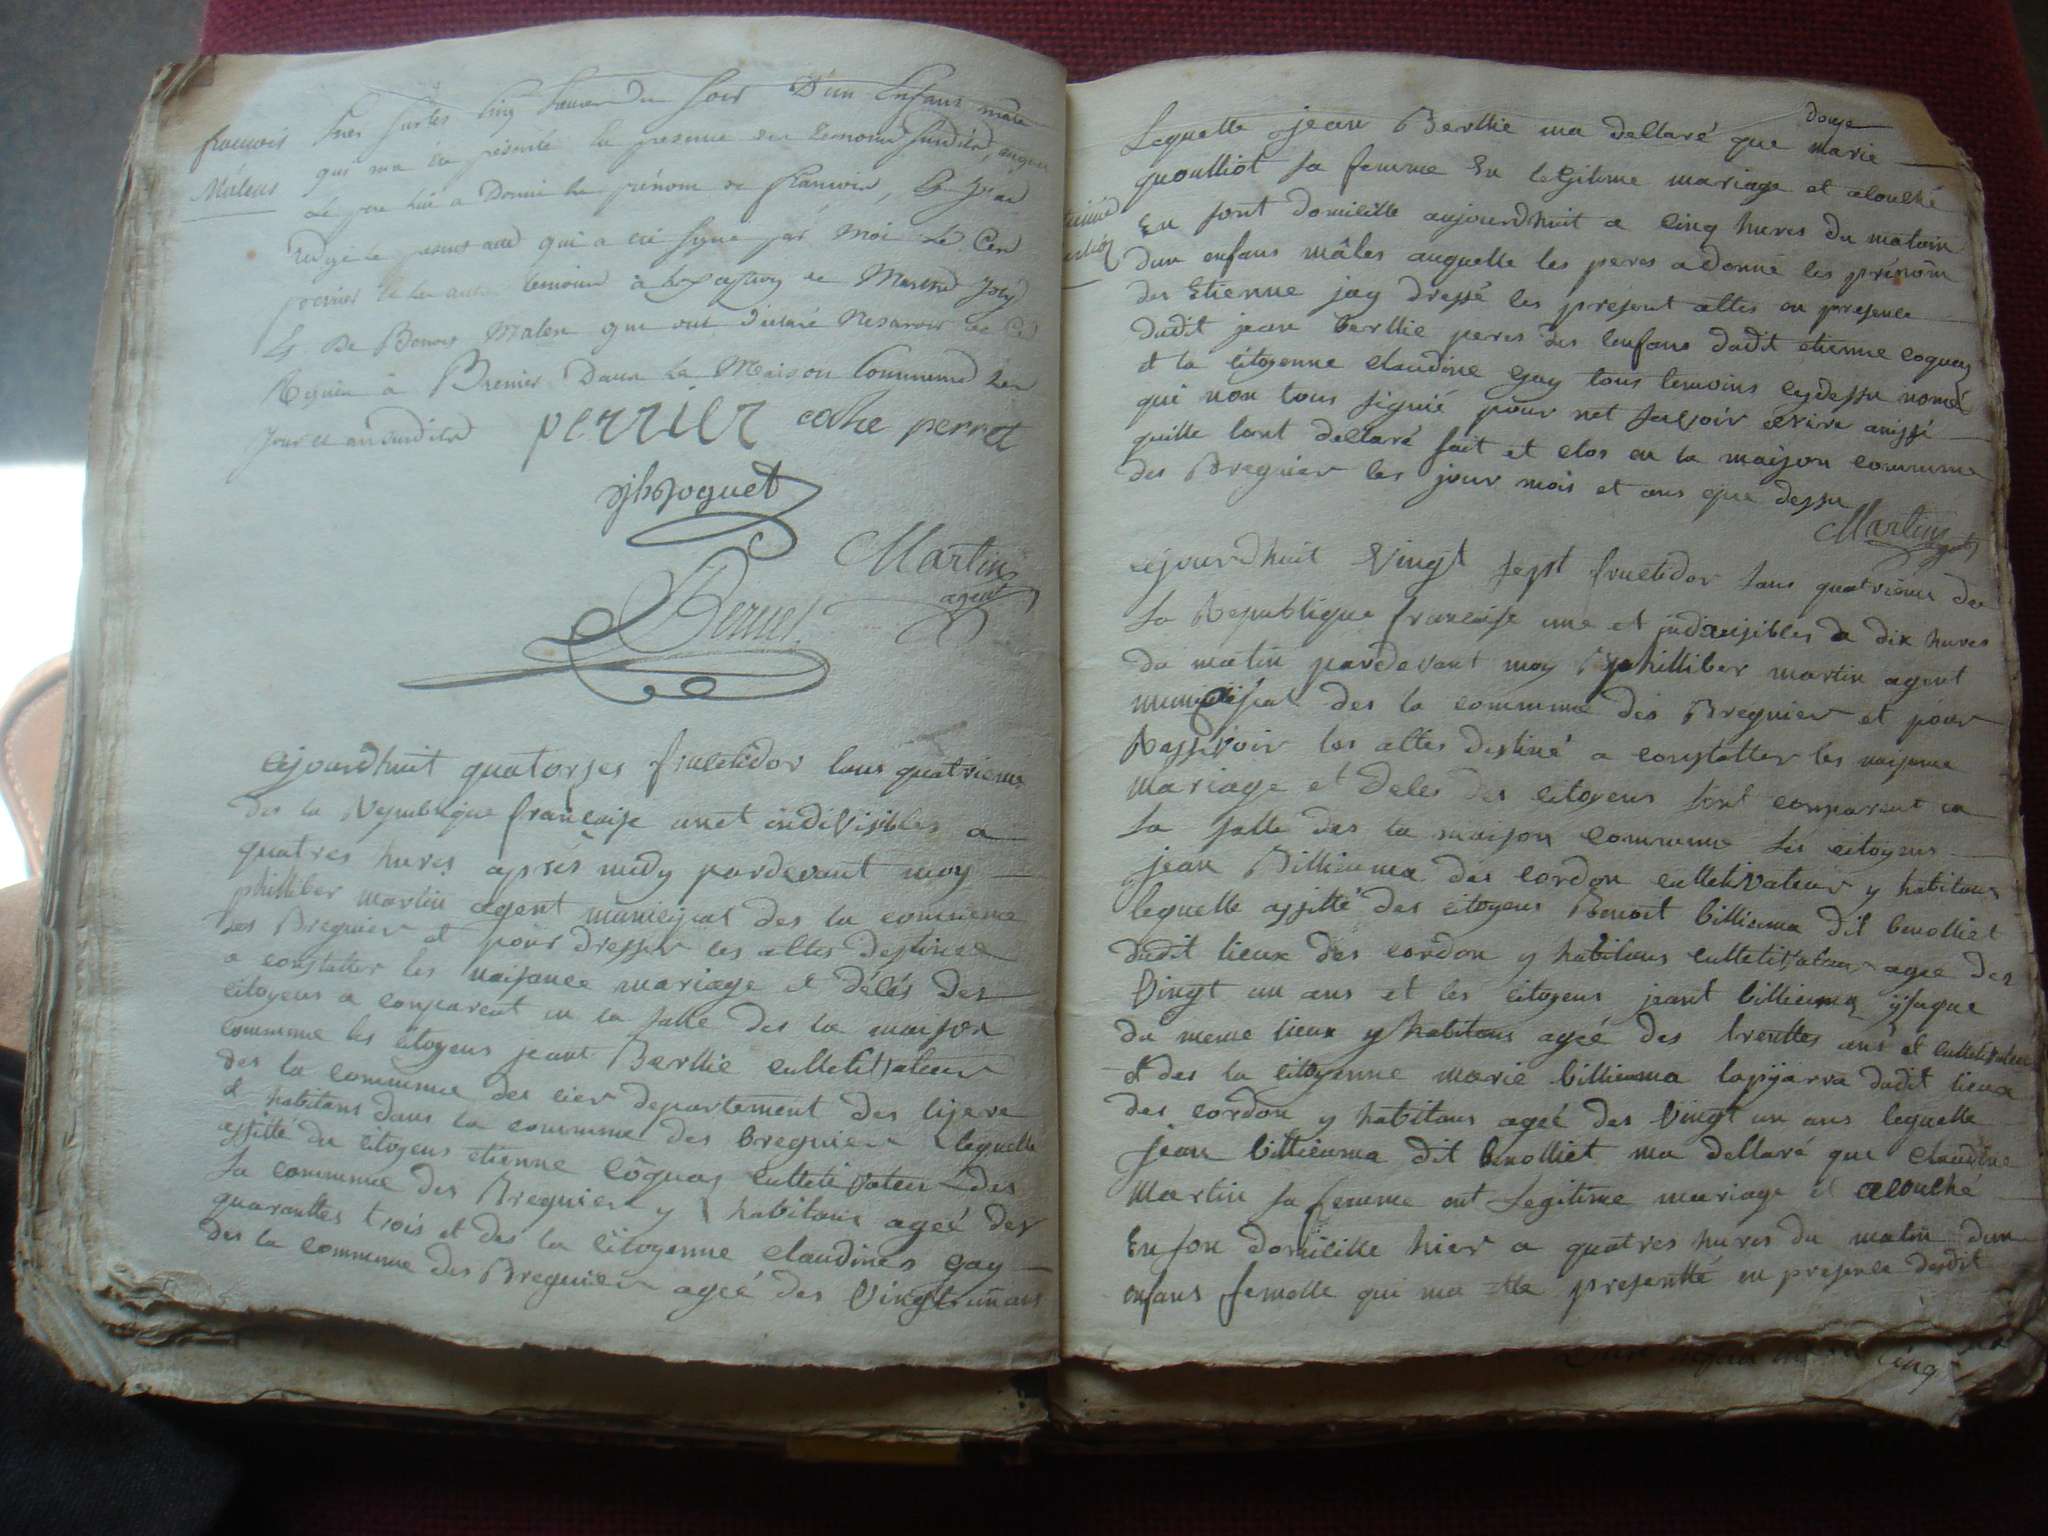 francois
Mateus
hier sur les cinq heures du soir D'un Enfans male
qui ma été présenté la presence des temoins susdits, auquel
Le pere lui a Donné le prénom de francois, Et j'ai
Redigé le present acte qui a été signé par Moi Le Cen
perrier et les autres temoins à
Et De Benoit Maten qui ont déclaré Nesavoir
à Brenier Dans La Maison Commune Les
Jour et an susdits
perrier coche perret
jh Joguet
Martin
agent
Bernet
ajourdhuit quatorzes fructidor lans quatrieme
des la Republique francaise unet indivisibles a
quatres hures après midy pardevant moy
philliber martin agent municipal des la commune
des Bregnier et pour dresser les altes destinee
a constatter les naisance mariage et délés des
citoyens a conparent en la salle des la maison
commune les citoyens jeant Berllie culletivateur
des la commune des cier departement des lizere
et habitans dans la commune des bregnier lequelle
assitté du citoyens etienne côquaz culletivateur des
la commune des Bregnier y habitans ageé des
quaranttes trois et des la citoyenne claudines gay
des la commune des Bregnier ageé des Vingt un ans
Lequelle jean Berllie ma dellaré que marie
douze
quoulliot sa femme En letgitime mariage et alouché
En sont domicille aujourdhuit a cinq hures du matin
dun enfans mâles auquelle les peres adonné les prénom
des Etienne jay dressé les present altes en presence
dudit jean berllie peres des lenfans dudit etienne coquaz
et la citoyenne claudine gay tous temoins cydessu nomeé
qui non tous signié pour net savoir ecrire anissi
quille lont dellaré fait et clos en la maison commune
des Bregnier les jour mois et ans que dessu
Martin agent
ajourdhuit Vingt sept fructidor lans quatrieme des
la Republique francaise une et indivisibles a dix hures
du matin pardevant moy philliber martin agent
municipal des la commune des Bregnier et pour
Ressevoir les altes destiné a constatter les naisance
mariage et deles des citoyens sont conparent en
la salle des la maison commune les citoyens
jean Billiema des cordon culletivateur y habitans
lequelle assitté des citoyens Benoit billiema dit benolliet
dudit lieux des cordon y habitans culletivateur ageé des
Vingt un ans et les citoyens jeant billiema
du meme lieux y habitans ageé des trenttes ans et culletivateur
et des la citoyenne marie billiema dudit lieux
des cordon y habitans ageé des Vingt un ans lequelle
jean billiema dit benolliet ma dellaré que claudine
martin sa femme ent Legitime mariage et alouché
En son domicille hier a quatres hures du matin dun
enfans femelle qui ma ette presentté en presence dudit
cinq